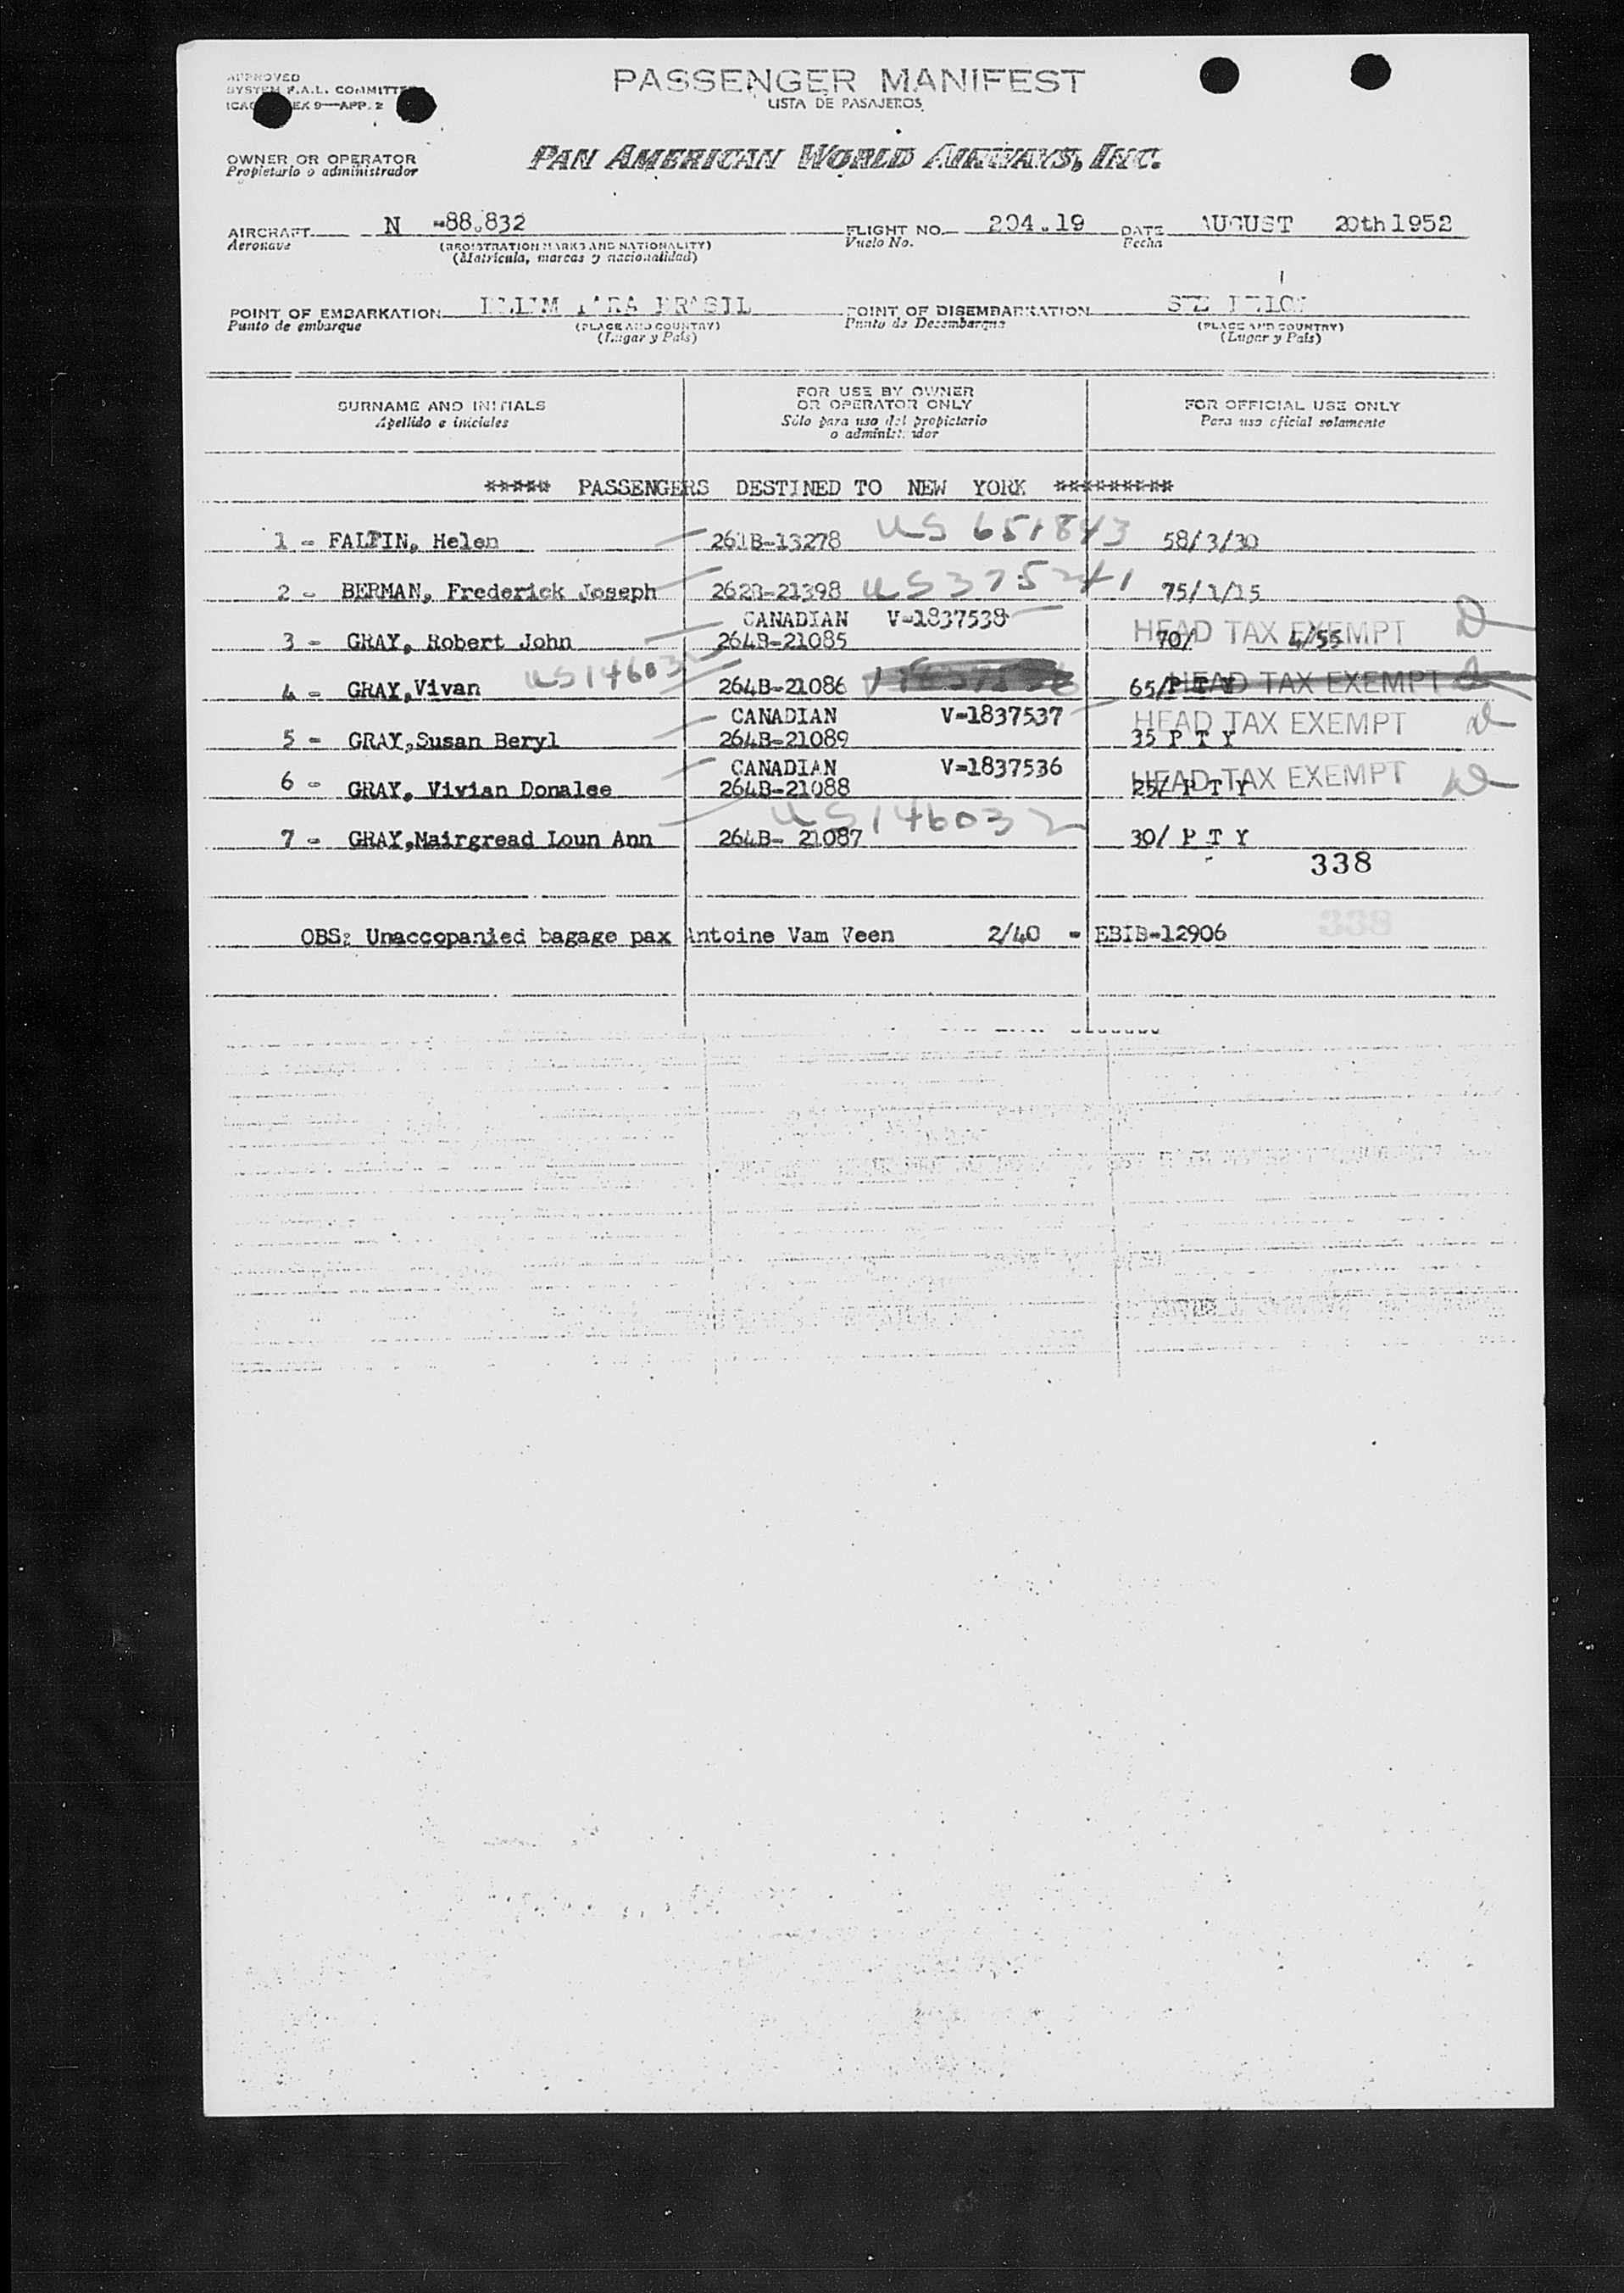 APPROVED
PASSENGER MANIFEST
SYSTEM F.A.L. COMMITTEE
LISTA DE PASAJEROS
EX 9—APP. 2
OWNER OR OPERATOR
PAN AMERICAN WORLD AIRWAYS, INC.
Propietario o administrador
AIRCRAFT N -88.832 FLIGHT NO. 204.19 DATE AUGUST 20th 1952
Aeronave (REGISTRATION MARKS AND NATIONALITY) Vuelo No. Fecha
(Matrícula, marcas y nacionalidad)
POINT OF EMBARKATION PARA BRASIL POINT OF DISEMBARKATION
Punto de embarque (PLACE AND COUNTRY) Punto de Desembarque (PLACE AND COUNTRY)
(Lugar y País) (Lugar y País)
SURNAME AND INITIALS FOR USE BY OWNER OR OPERATOR ONLY FOR OFFICIAL USE ONLY
Apellido e iniciales Sólo para uso del propietario o administrador Para uso oficial solamente
***** PASSENGERS DESTINED TO NEW YORK *********
1 - Helen 261B-13278 US 651843 58/3/30
2 - BERMAN, Frederick Joseph 262B-21398 US 58/3/30 75/1/15
CANADIAN V-1837538 HEAD TAX EXEMPT
3 - GRAY, Robert John 264B-21085 70/ 4/55
4 - GRAY,Vivan US146032 264B-21086 65/P T Y HEAD TAX EXEMPT
CANADIAN V-1837537 HEAD TAX EXEMPT
5 - GRAY,Susan Beryl 264B-21089 35 P T Y
CANADIAN V-1837536 HEAD TAX EXEMPT
6 - GRAY, Vivian Donalee 264B-21088 25/ P T Y
US146032
7 - GRAY,Mairgread Loun Ann 264B- 21087 30/ P T Y
338
OBS: Unaccopanied bagage pax Antoine Vam Veen 2/40 - EBIB-12906
338